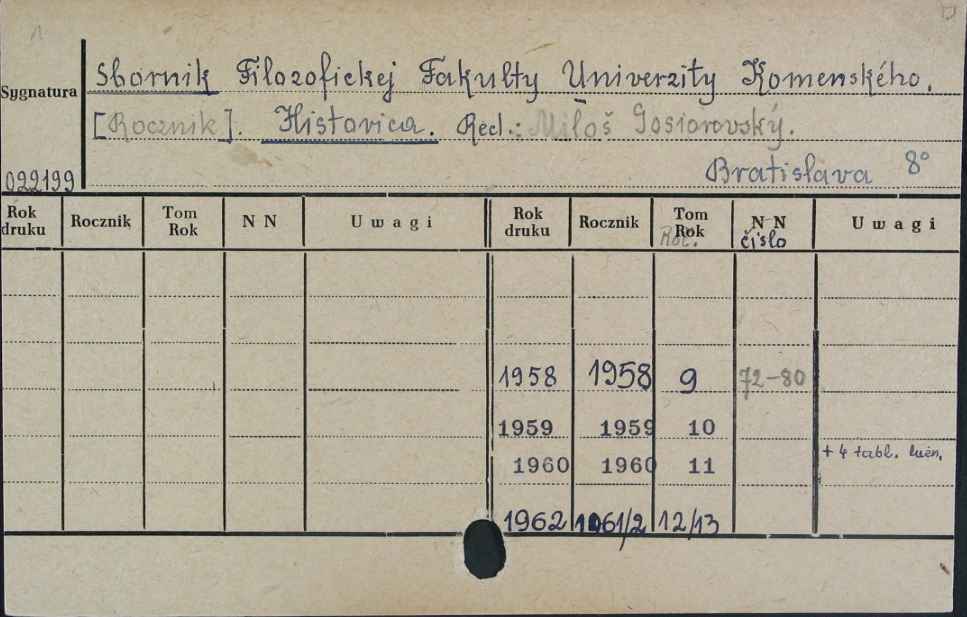 Sborník Filozofickej Fakulty Univerzity Komenského.
Sygnatura
[Rocznik]. Historica. Red.: Miloš Gosiorovský.
Bratislava 8°
022199
Rok druku Rocznik Tom Rok N N Uwagi Rok druku Rocznik Tom Rok N N Uwagi
Roč. číslo
1958 1958 9 72-80
1959 1959 10
+ 4 tabl. luźn.
1960 1960 11
1962 1961/2 12/13